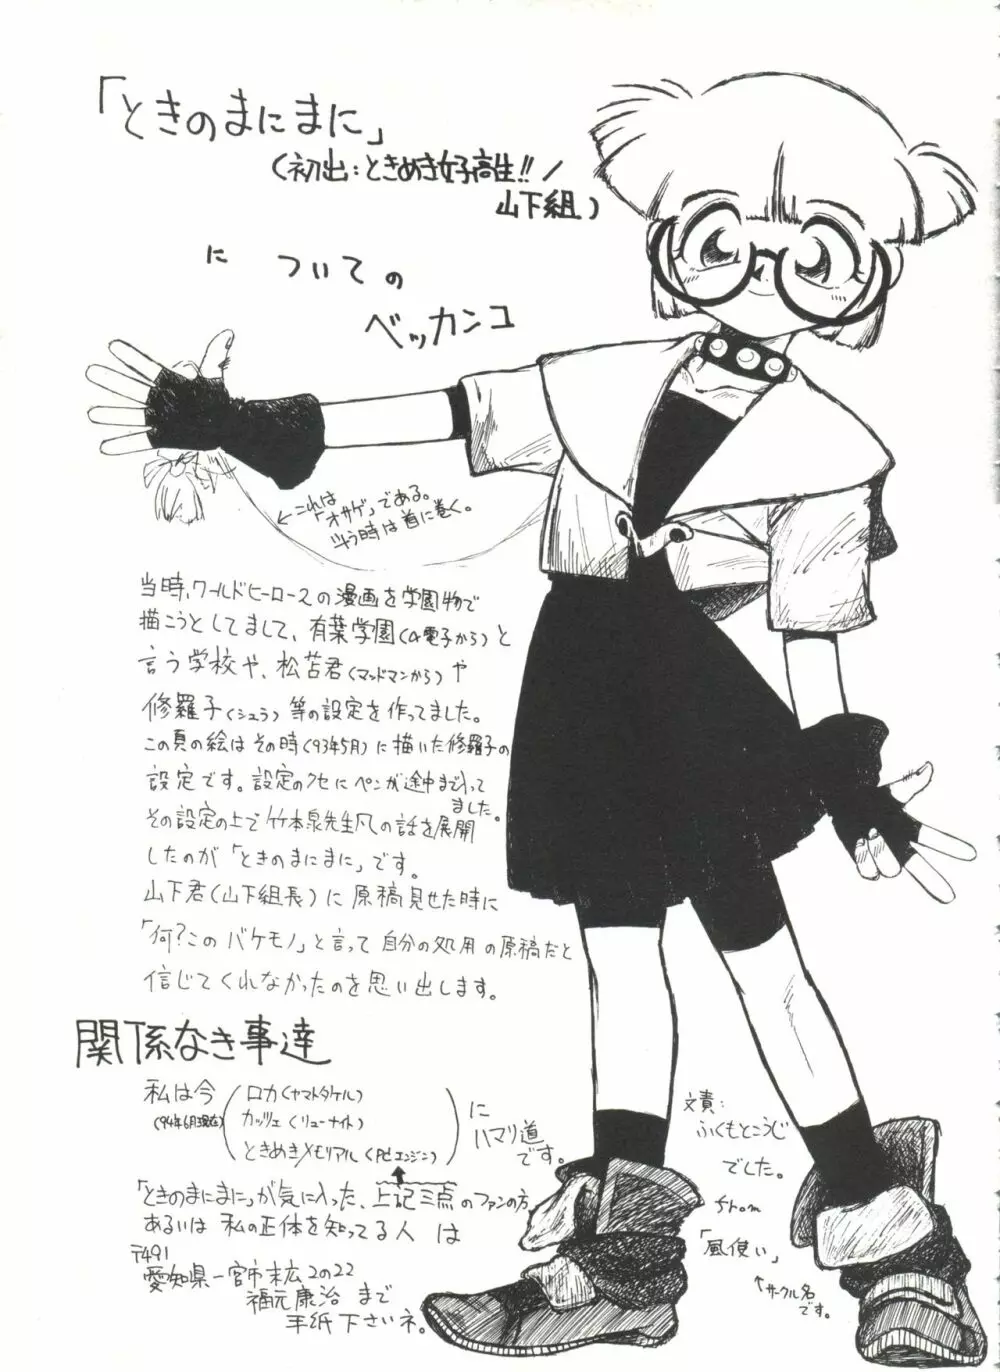 「ときのまにまに」
(初出：ときめき好高生!!/
山下組)
に ついての
ベッカンコ
←これは
「オサゲ」である。
闘う時は首に巻く。
当時、ワールドヒーロースの漫画を学園物で
描こうとしてまして、有葉学園(α電子から)と
言う学校や、松苫君(マッドマンから)や
修羅子(シュラ)等の設定を作ってました。
この頁の絵はその時(93年5月)に描いた修羅子の
設定です。設定のクセにペンが途中まで入って
ました。
その設定の上で竹本泉先生風の話を展開
したのが「ときのまにまに」です。
山下君(山下組長)に原稿見せた時に
「何?このバケモノ」と言って自分の処用の原稿だと
信じてくれなかったのを思い出します。
関係なき事達
私は今
(94年6月現在)
ロカ(ヤマトタケル)
カッツェ(リューナイト)
ときめきメモリアル(PCエンジン)
に
ハマリ道
です。
「ときのまにまに」が気に入った、上記三点のファンの方、
あるいは私の正体を知ってる人は
〒491
愛知県一宮市末広2の22
福元康治まで
手紙下さいネ。
文責：
ふくもとこうじ
でした。
from
「風使い」
↑サークル名
です。